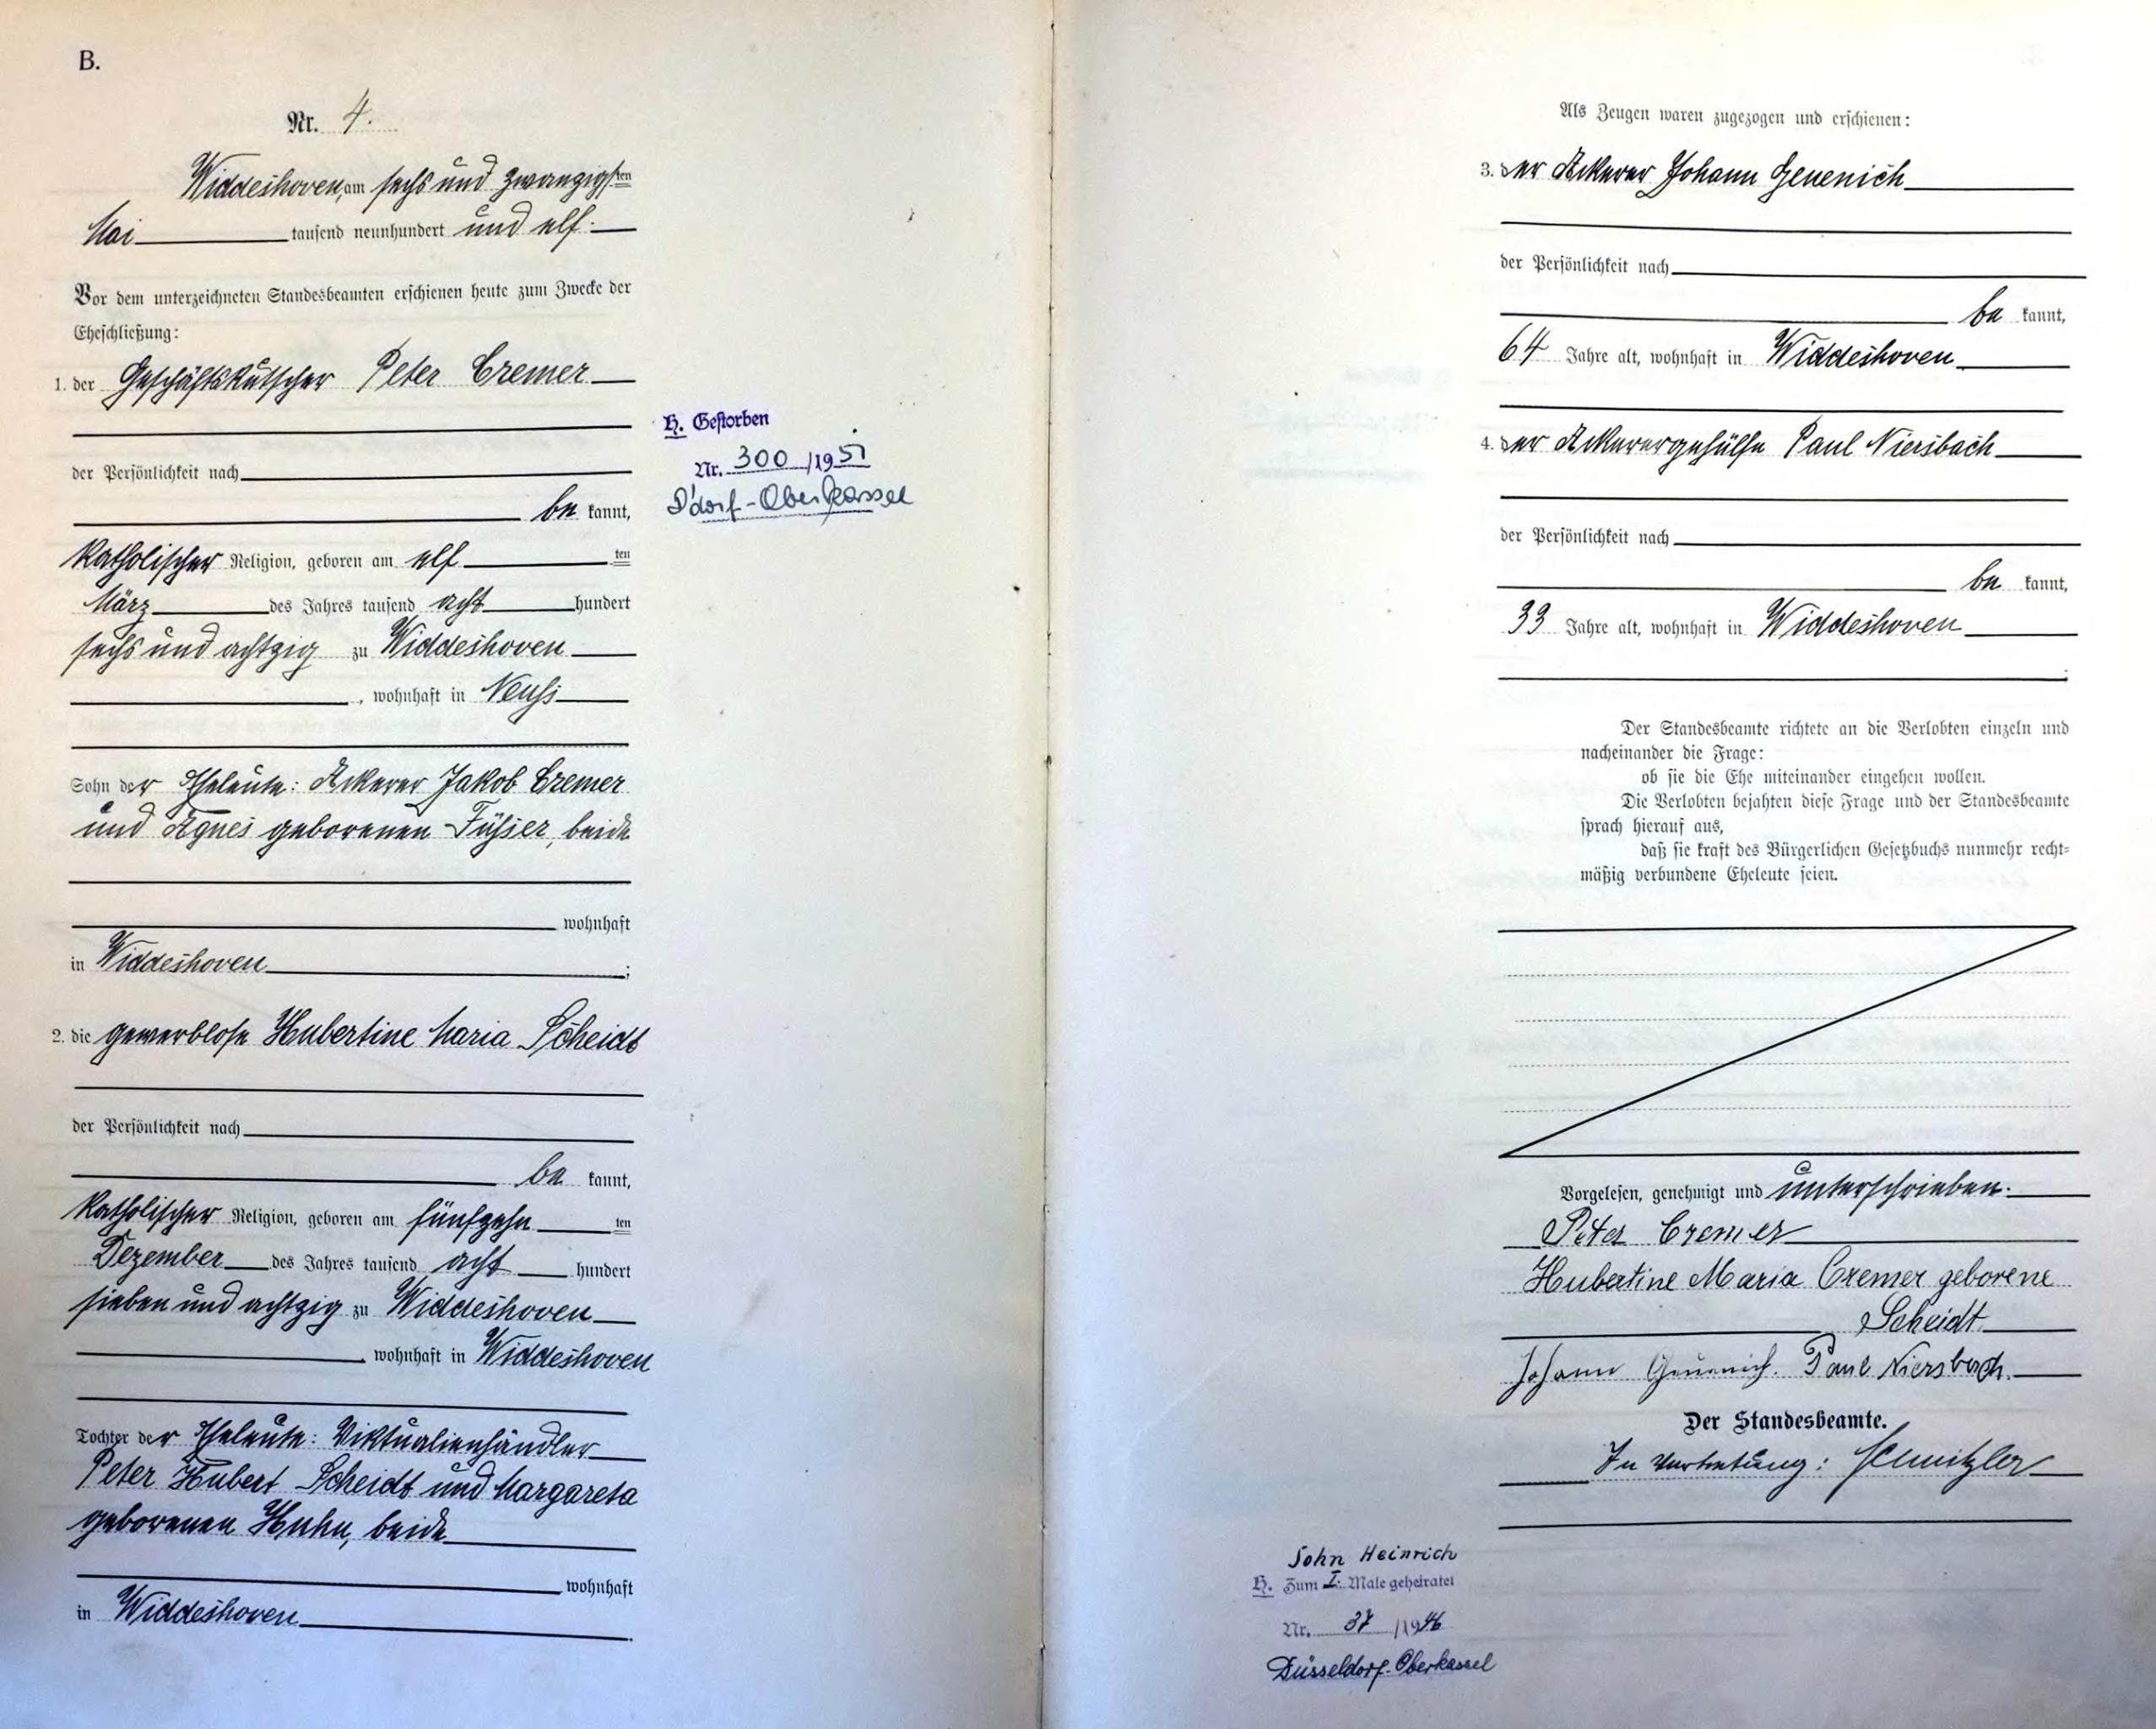 B.
Nr. 4.
Widdeshoven, am sechs und zwanzigsten
Mai tausend neunhundert und elf.
Vor dem unterzeichneten Standesbeamten erschienen heute zum Zwecke der
Eheschließung:
1. der Geschäftskutscher Peter Cremer
der Persönlichkeit nach
be kannt,
katholischer Religion, geboren am elf ten
März des Jahres tausend acht hundert
sechs und achtzig zu Widdeshoven
, wohnhaft in Neuss
Sohn der Eheleute: Ackerer Jakob Cremer
und Agnes geborenen Füsser, beide
wohnhaft
in Widdeshoven ;
2. die gewerblose Hubertine Maria Scheidt
der Persönlichkeit nach
be kannt,
katholischer Religion, geboren am fünfzehn ten
Dezember des Jahres tausend acht hundert
sieben und achtzig zu Widdeshoven
, wohnhaft in Widdeshoven
Tochter der Eheleute: Viktualienhändler
Peter Hubert Scheidt und Margareta
geborenen Huhn, beide
wohnhaft
in Widdeshoven .
H. Gestorben
Nr. 300 /1951
D'dorf-Oberkassel
Als Zeugen waren zugezogen und erschienen:
3. der Ackerer Johann Geuenich
der Persönlichkeit nach
be kannt,
64 Jahre alt, wohnhaft in Widdeshoven
4. der Ackerergehülfe Paul Niersbach
der Persönlichkeit nach
be kannt,
33 Jahre alt, wohnhaft in Widdeshoven
.
Der Standesbeamte richtete an die Verlobten einzeln und
nacheinander die Frage:
ob sie die Ehe miteinander eingehen wollen.
Die Verlobten bejahten diese Frage und der Standesbeamte
sprach hierauf aus,
daß sie kraft des Bürgerlichen Gesetzbuchs nunmehr recht-
mäßig verbundene Eheleute seien.
Vorgelesen, genehmigt und unterschrieben.
Peter Cremer
Hubertine Maria Cremer geborene
Scheidt
Johann Geuenich. Paul Niersbach.
Der Standesbeamte.
In Vertretung: Schnitzler
Sohn Heinrich
H. Zum I. Male geheiratet
Nr. 37 /1946
Düsseldorf-Oberkassel